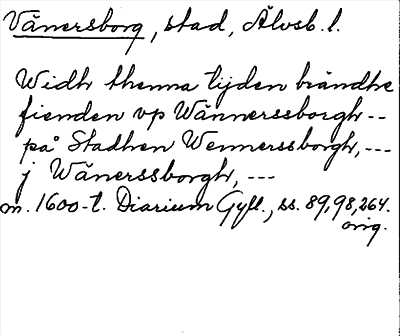 Vänersborg, stad, Älvsb. l.
Widh thenna tijden brändhe
fienden vp Wännerssborgh --
på Stadhen Wennerssborgh, ---
j Wänerssborgh, ---
m. 1600-t. Diarium Gyll., ss. 89, 98, 264.
orig.